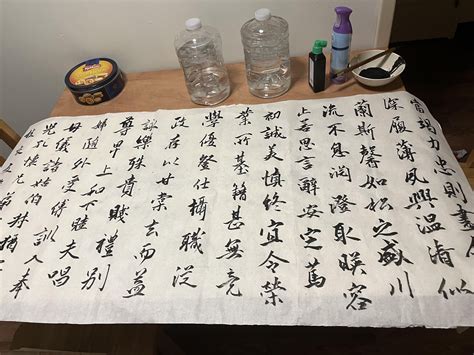 當竭力忠則盡
深履薄夙興溫凊似
蘭斯馨如松之盛川
流不息淵澄取映容
止若思言辭安定篤
初誠美慎終宜令榮
業所基籍甚無竟
學優登仕攝職從
政存以甘棠去而益
詠樂殊貴賤禮別
尊卑上和下睦夫唱
婦隨外受傅訓入奉
母儀諸姑伯叔猶
兒孔懷兄弟